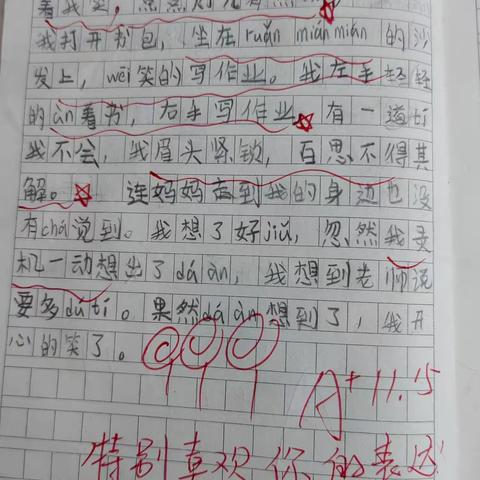 我打开书包，坐在ruǎn miánmián的沙
发上，wēi笑的写作业。我左手轻轻
的àn着书，右手写作业。有一道tí
我不会，我眉头紧锁，百思不得其
解。连妈妈走到我的身边也没
有chá觉到。我想了好jiǔ，忽然我灵
机一动想出了dá àn，我想到老师说
要多dú tí。果然dá àn想到了，我开
心的笑了。
A+ 11.15
特别喜欢你的表达